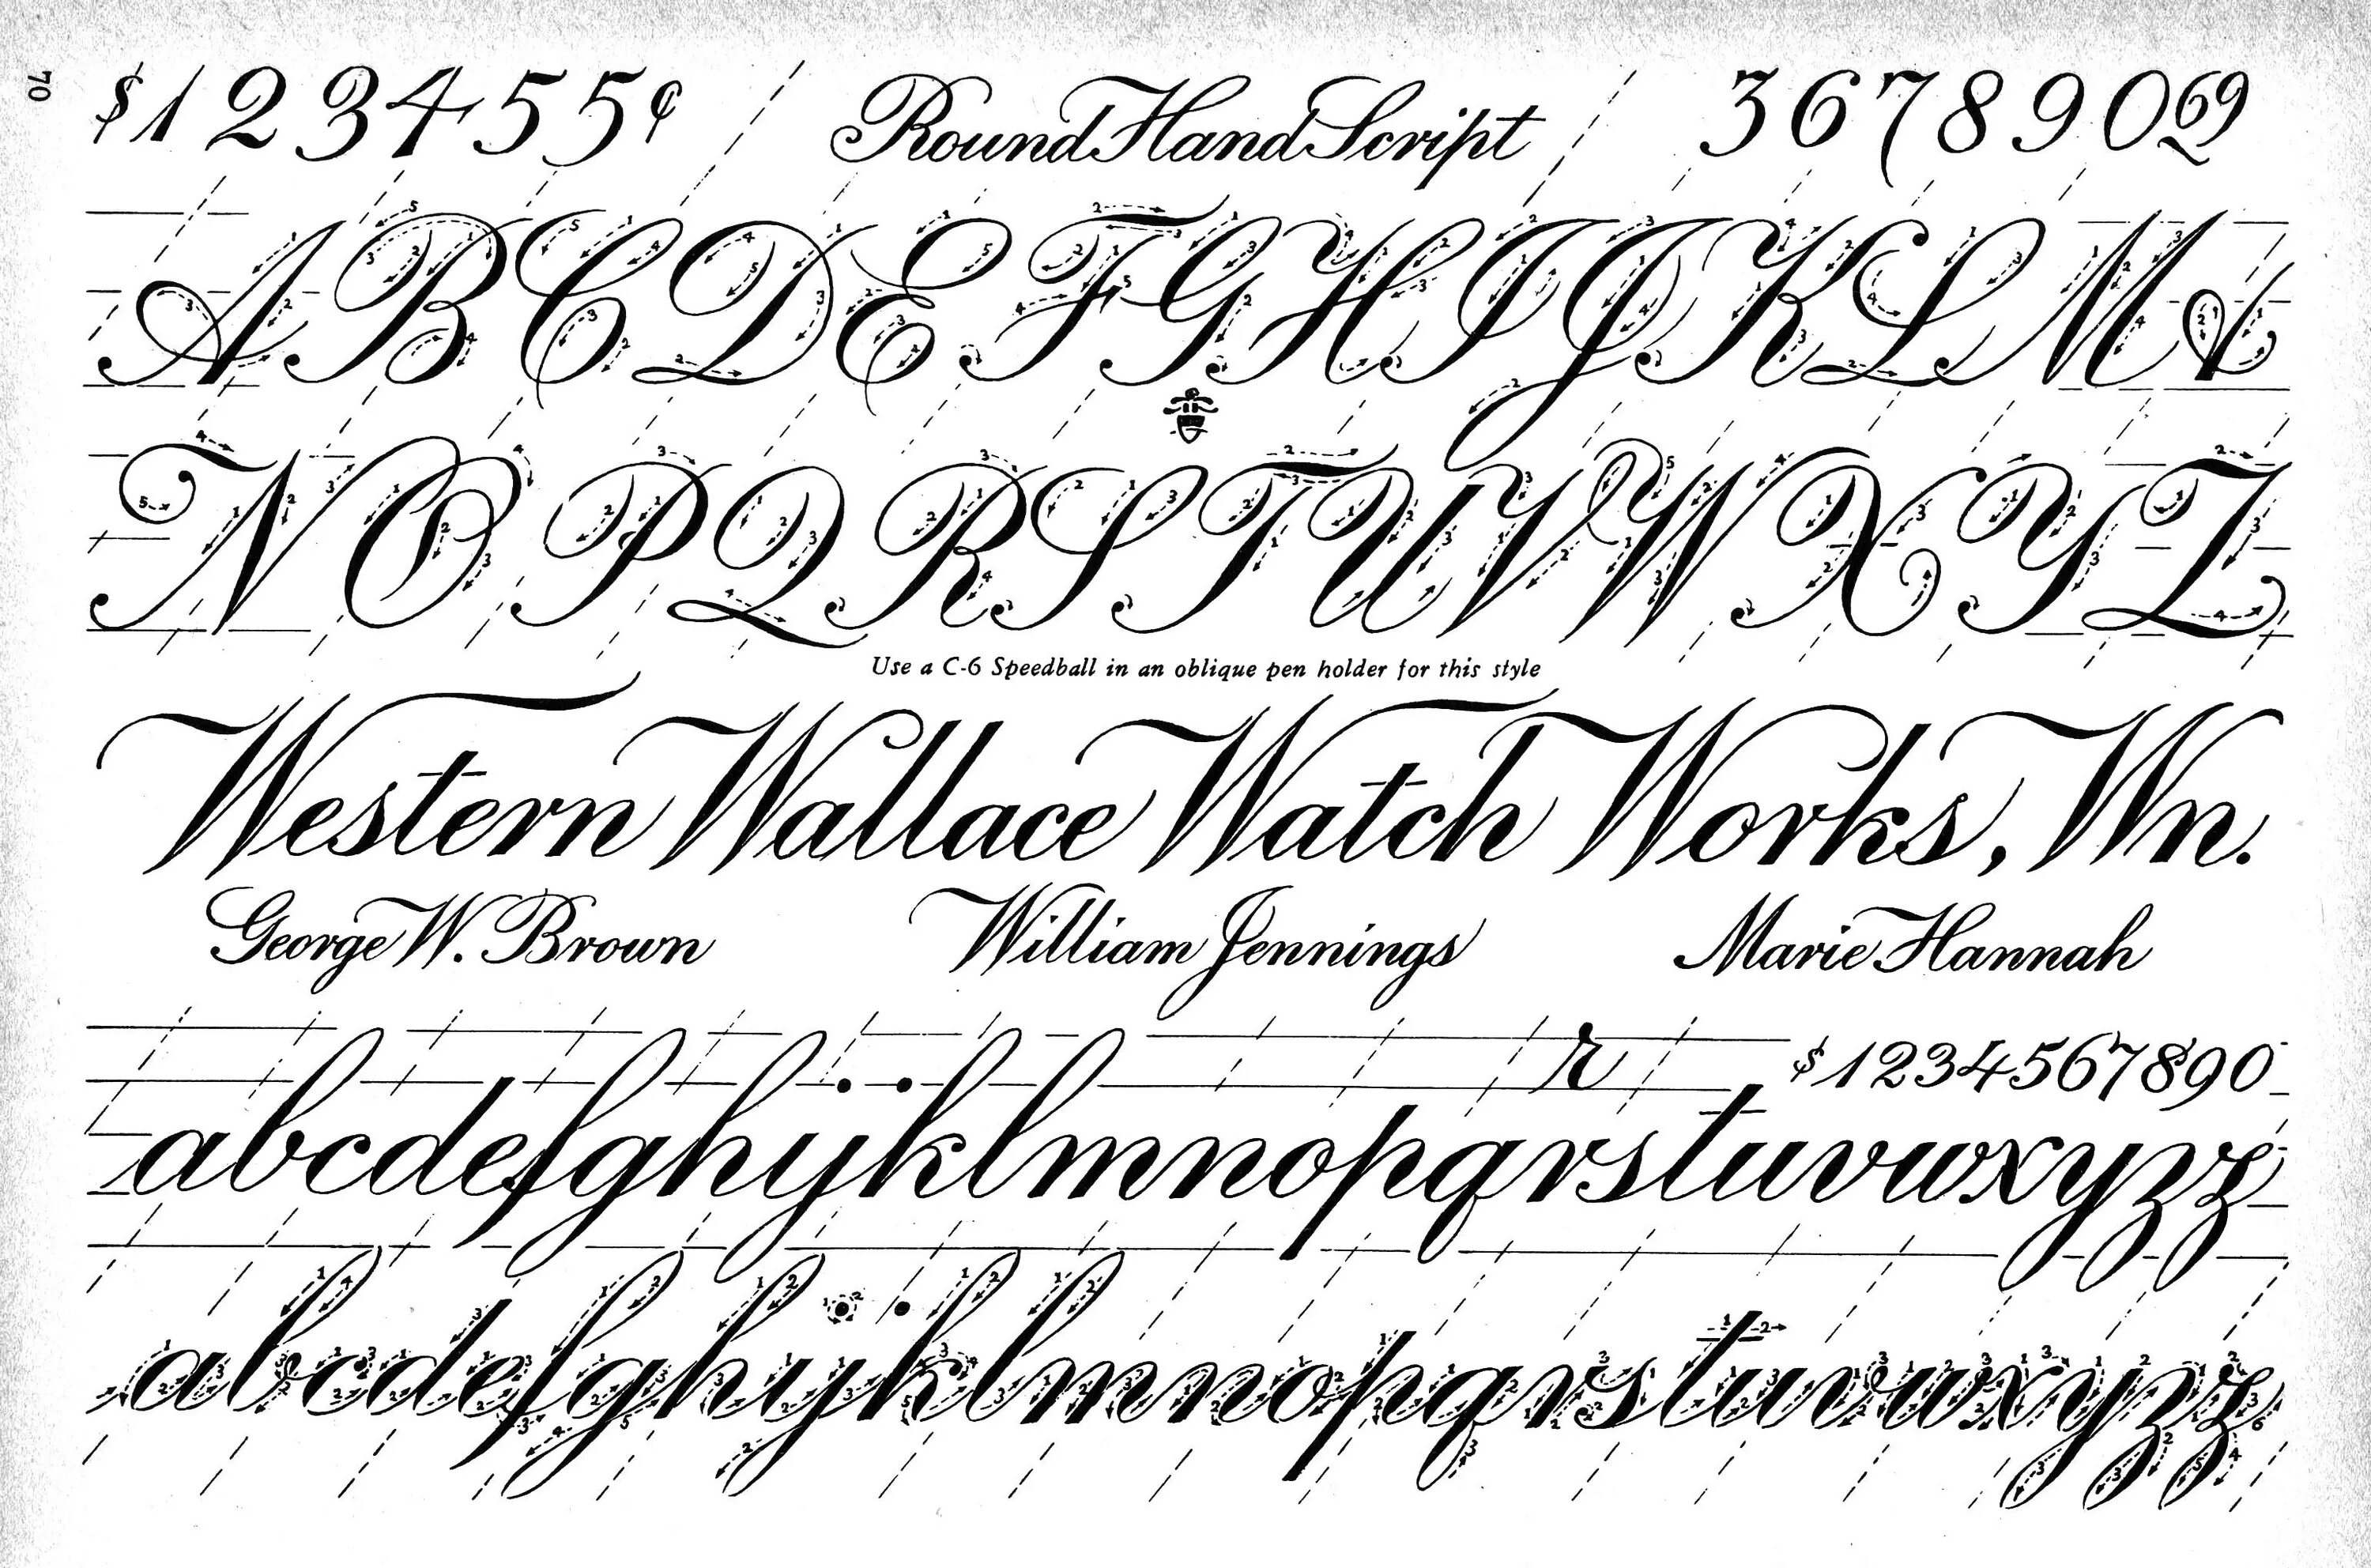 70
$ 1 2 3 4 5 5 ¢ Round Hand Script 3 6 7 8 9 0 69
A B C D E F G H I J K L M A
N O P Q R S T U V W X Y Z
Use a C-6 Speedball in an oblique pen holder for this style
Western Wallace Watch Works, Wn.
George W. Brown William Jennings Marie Hannah
r $1234567890
abcdefghijklmnopqrstuvwxyzz
abcdefghijklmnopqrstuvwxyzz